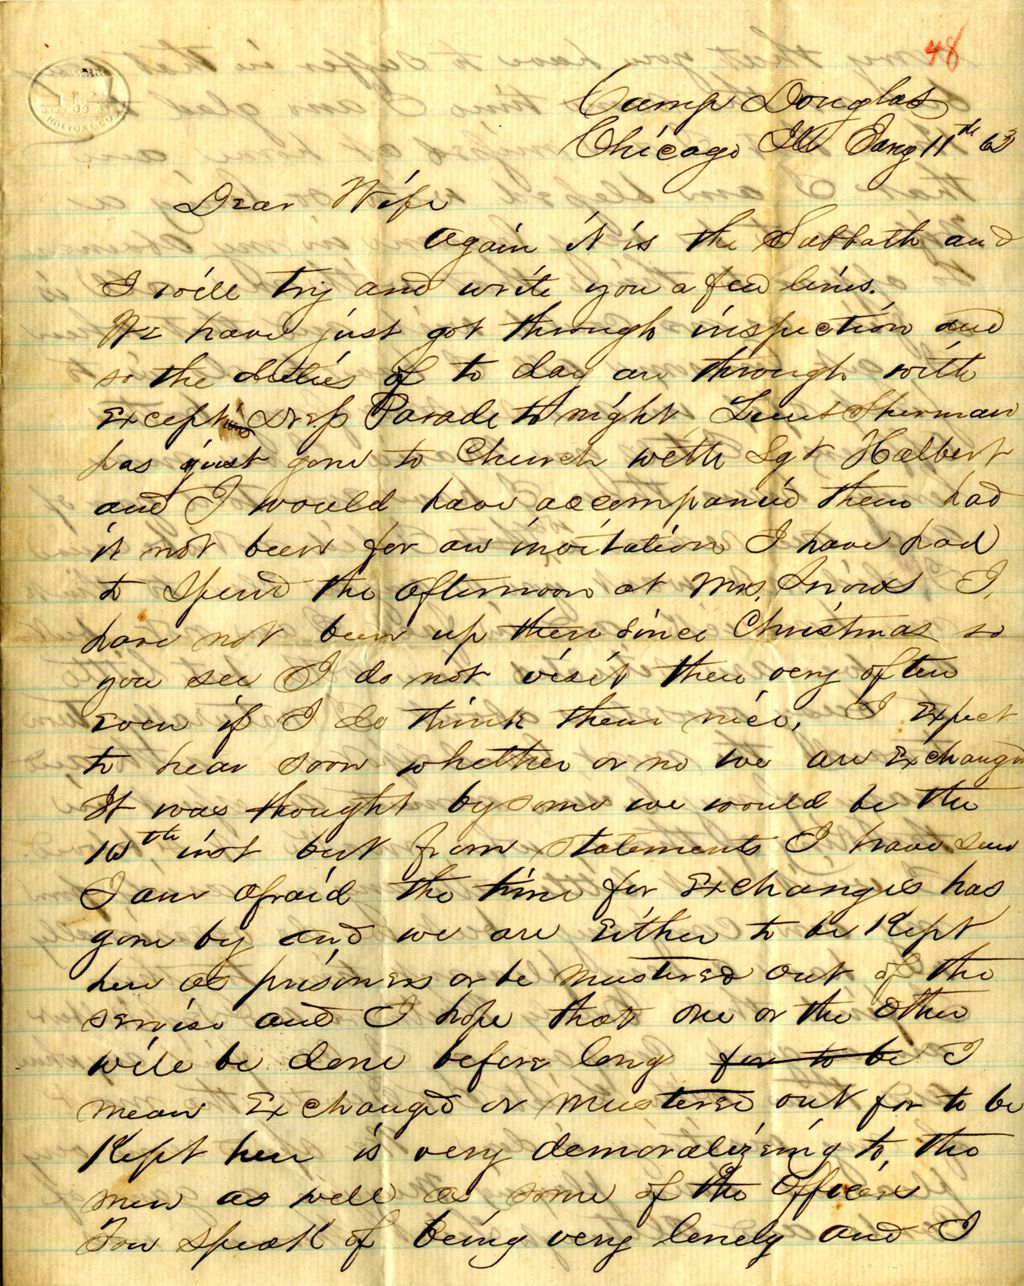 48
Camp Douglas
Chicago Ill Jany 11th 63
Dear Wife
Again it is the Sabbath and
I will try and write you a few lines.
We have just got through inspection and
so the duties of to day are through with
Except Dress Parade to night Lieut Sherman
has just gone to Church with Sgt Halbert
and I would have accompanied them had
it not been for an invitation I have had
to spend the afternoon at Mrs. I
have not been up there since Christmas so
you see I do not visit there very often
even if I do think them nice, I Expect
to hear soon whether or no we are Exchanged
It was thought by some we would be the
10th inst but from statements I have seen
I am afraid the time for Exchanges has
gone by and we are Either to be Kept
here as prisoners or be mustered out of the
servise and I hope that one or the other
will be done before long for to be I
mean Exchanged or mustered out for to be
Kept here is very demoralizing to the
men as well as some of the Officers
You speak of being very lonely and I